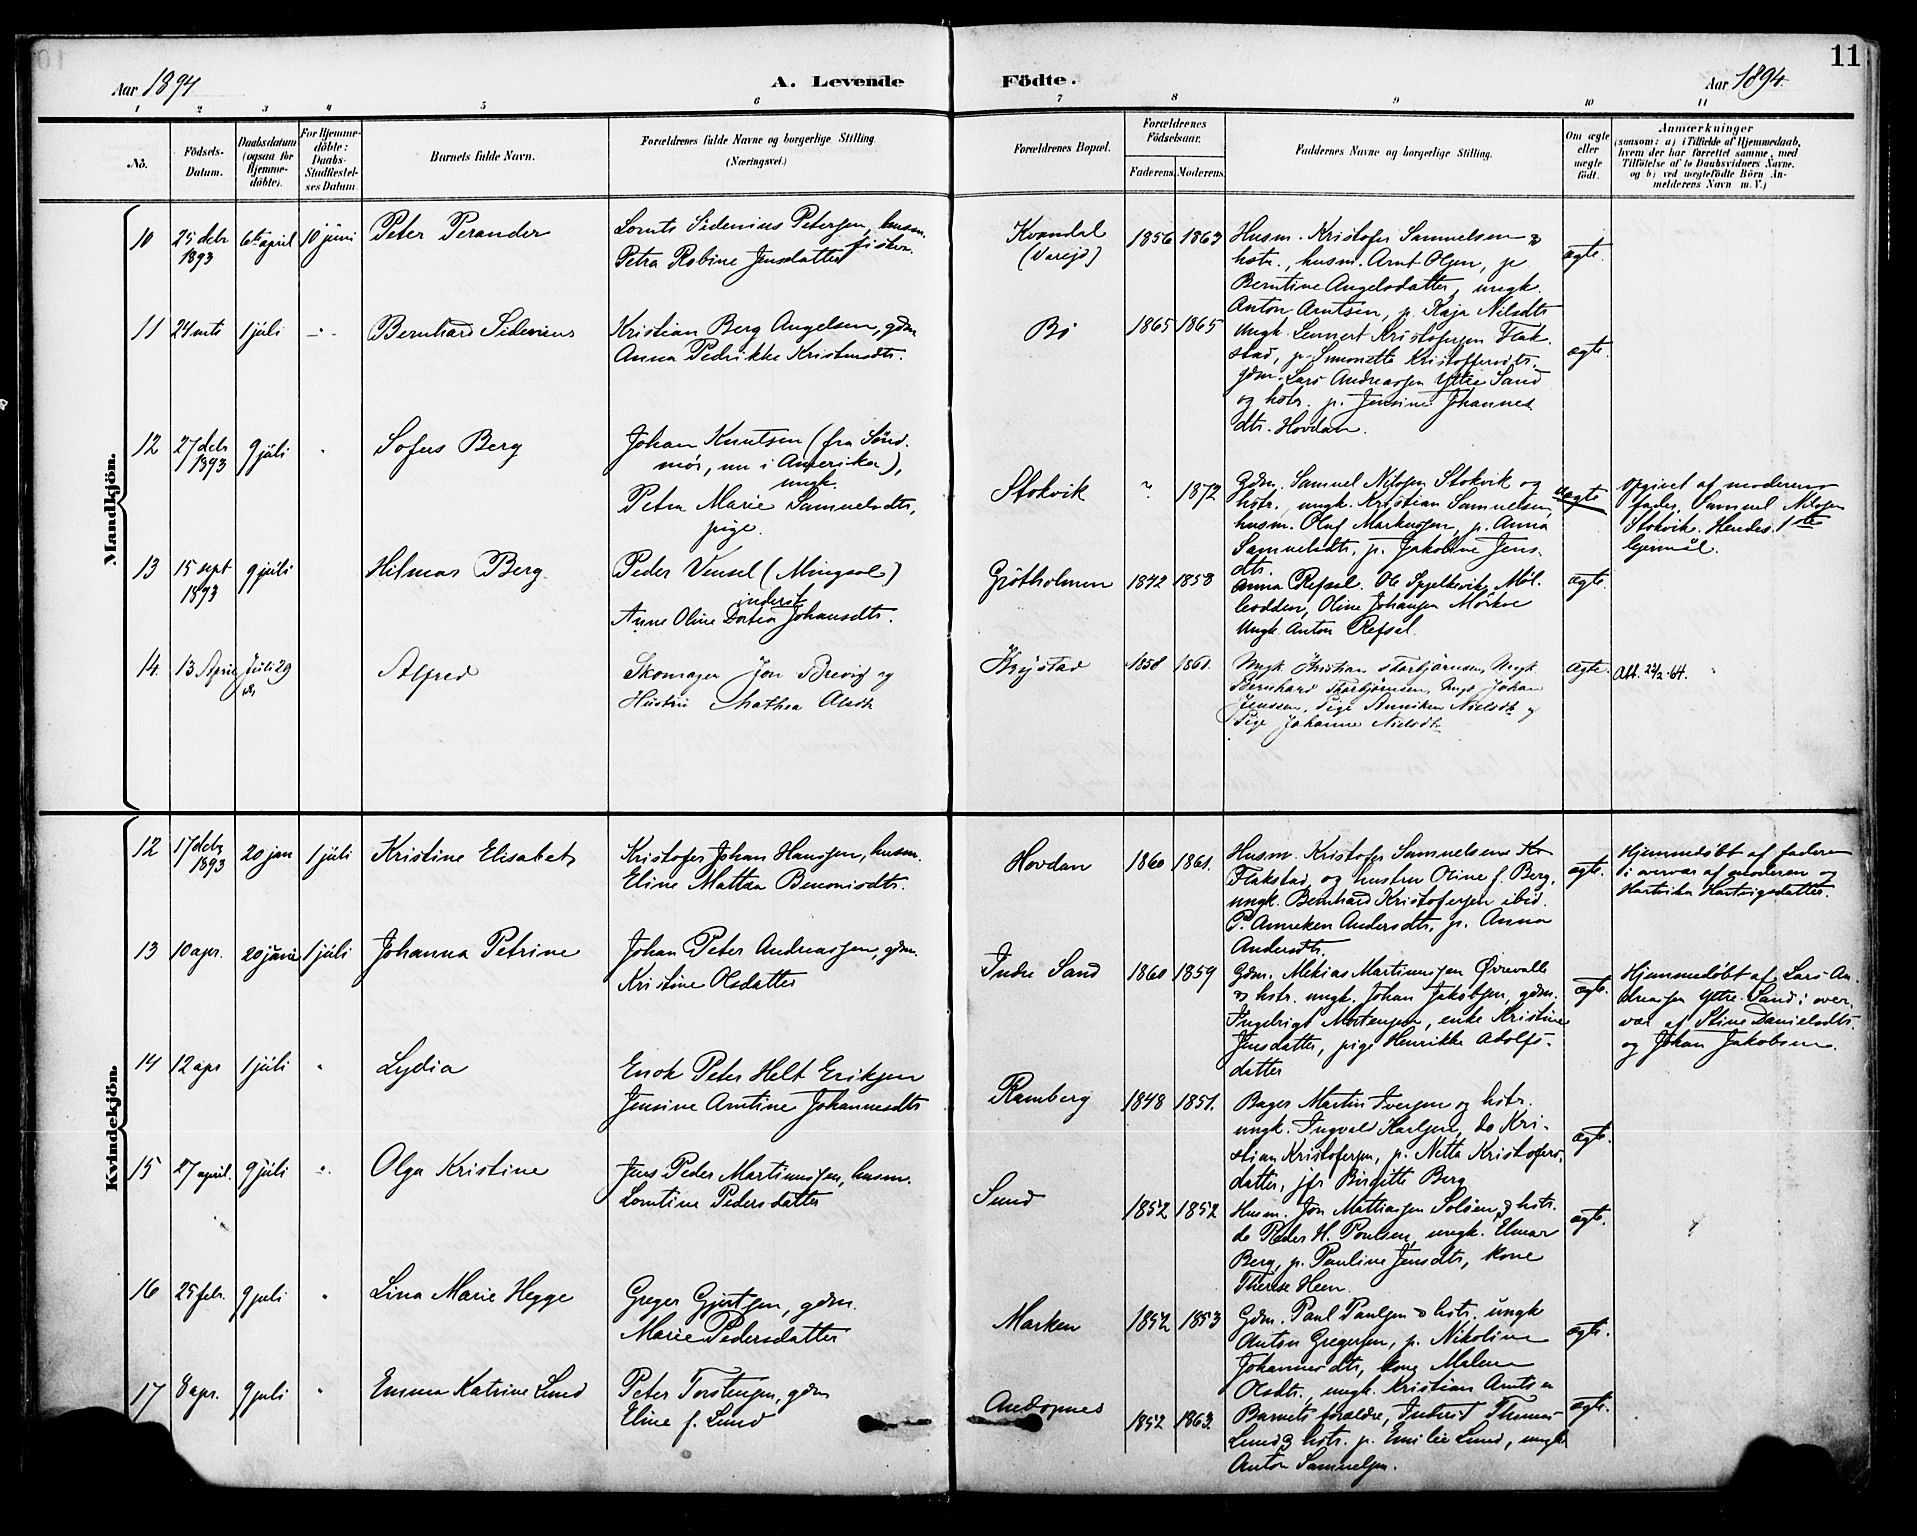 11
Aar 1894
A. Levende
Födte.
Aar 1894.
1 2 3 4 5 6 7 8 9 10 11
No.
Födsels-
Datum.
Daabsdatum
(ogsaa for
Hjemme-
döbte).
For Hjemme-
döbte:
Daabs-
Stadfæstel-
ses Datum
Barnets fulde Navn.
Forældrenes fulde Navne og borgerlige Stilling
(Næringsvei.)
Forældrenes Bopæl.
Forældrenes
Födselsaar.
Faderens.
Moderens.
Faddernes Navne og borgerlige Stilling.
Om ægte
eller
uægte
födt.
Anmærkninger
(saasom: a) i Tilfælde af Hjemmedaab,
hvem der har forrettet samme, med
Tilföielse af to Daabsvidners Navne,
og b) ved uægtefödte Börn An-
melderens Navn m. V.)
Mandkjön.
10
25 debr
1893
6te april
10 juni
Peter Perander
Lornts Sidenius Petersen, husm.
fisker.
Petra Robine Jensdatter
Kvandal
(Vareid)
1856 1863
Husm. Kristofer Samuelsen &
hstr., husm. Arnt Olsen, p
Berntine Angelsdatter, ungk.
Anton Arntsen, p. Kaja Nilsdtr
ægte.
11
24 mts
1 júli
Bernhard Sidenius
Kristian Berg Angelsen, gdm
Anna Pedrikke Kristensdtr.
Bö
1865 1865
Ungk. Lennert Kristofersen Flak-
stad, p. Simonette Kristoffersdtr.
gdm. Lars Andreassen Yttre Sand
og hstr. p. Jensine Johannes
dtr. Hovdan.
ægte.
12
27 debr
1893
9 júli
Sofus Berg
Johan Knutsen (fra Sönd-
mör, nu i Amerika),
ungk.
Petra Marie Samuelsdtr,
pige.
Stokvik
? 1872
gdm. Samuel Nilssen Stokvik og
hstr., ungk. Kristian Samuelsen,
husm. Oluf Markussen, p. Anna
Samuelsdtr, p. Jakobine Jens-
dtr.
uægte
opgivet af moderens
fader, Samuel Nilssen
Stokvik. Hendes 1ste
leiermål.
13
15 sept
1893
9 júli
Hilmar Berg
Peder Vensel (Mingsol)
inderst
Anne Oline Dortea Johansdtr.
Grötholmen
1842 1858
Anna Refsal. Ole Spjelkevik, Möl-
lodden, Oline Johansen Mörkve
Ungk. Anton Refsal.
ægte.
14.
13 April
Juli 29
Alfred
Skomager Jon Brevig og
Hustru Mathea Olsdtr
Krystad
1858 1861.
Ungk. Kristian Thorbjørnsen, Ungk.
Bernhard Thorbjørnsen, Ungk. Johan
Jenssen, Pige Anniken Nielsdtr og
Pige Johanne Nielsdtr
ægte.
Att. 24/2-64.
Kvindekjön.
12
17 debr
1893
20 jan
1 júli
Kristine Elisabet
Kristofer Johan Hanssen, husm.
Eline Mattea Benonisdtr.
Hovdan
1860 1861.
Husm. Kristofer Samuelsen
Flakstad, og hustru Oline f. Berg,
ungk. Bernhard Kristofersen ibid.
P. Anneken Andersdtr, p. Anna
Andersdtr.
ægte.
Hjemmedøbt af faderen
i overvær af moderen og
Hartvika Hartvigsdatter.
13
10 apr.
20 júni
1 júli
Johanna Petrine
Johan Peter Andreassen, gdm.
Kristine Olsdatter
Indre Sand
1860 1859
Gdm. Mekias Martinussen Øvrevalle
& hstr. ungk. Johan Jakobsen, gdm.
Ingebrigt Mortensen, enke Kristine
Jensdatter, pige Henrikke Adolfs-
datter
ægte.
Hjemmedøbt af Lars An-
dreassen Yttre Sand i over-
vær af Stine Danielsdtr.
og Johan Jakobsen.
14
12 apr
1 júli
Lydia
Enok Peter Helt Eriksen
Jensine Arntine Johannesdtr
Ramberg
1848 1851.
Bager Martin Iversen og hstr.
ungk. Ingvald Karlsen, do Kri-
stian Kristofersen, p. Netta Kristofers-
datter, jfr Birgitte Berg
ægte.
15
27 april.
9 júli
Olga Kristine
Jens Peder Martinussen, husm.
Lorntine Pedersdatter
Sund
1852 1852
Husm. Jon Mathiassen Solöen, & hstr.
do Peder H. Poulsen, ungk. Elmar
Berg, p. Pauline Jensdtr, kone
Therese Heen.
ægte.
16
25 febr.
9 juli
Lina Marie Hegge
Greger Gjertsen, gdm.
Marie Pedersdatter
Marken
1852 1853
Gdm. Paul Paulsen & hstr. ungk
Anton Gregersen, p. Nikoline
Johannesdtr, kone Malena
Olsdtr., ungk. Kristian Arntsen
ægte.
17
8 apr.
9 juli
Emma Katrine Lund
Peter Torstensen, gdm
Eline f. Lund
Andopnes
1852 1863
Barnets forældre, Inderst Thomas
Lund & hstr. p. Emilie Lund, ungk
Anton Samuelsen.
ægte.